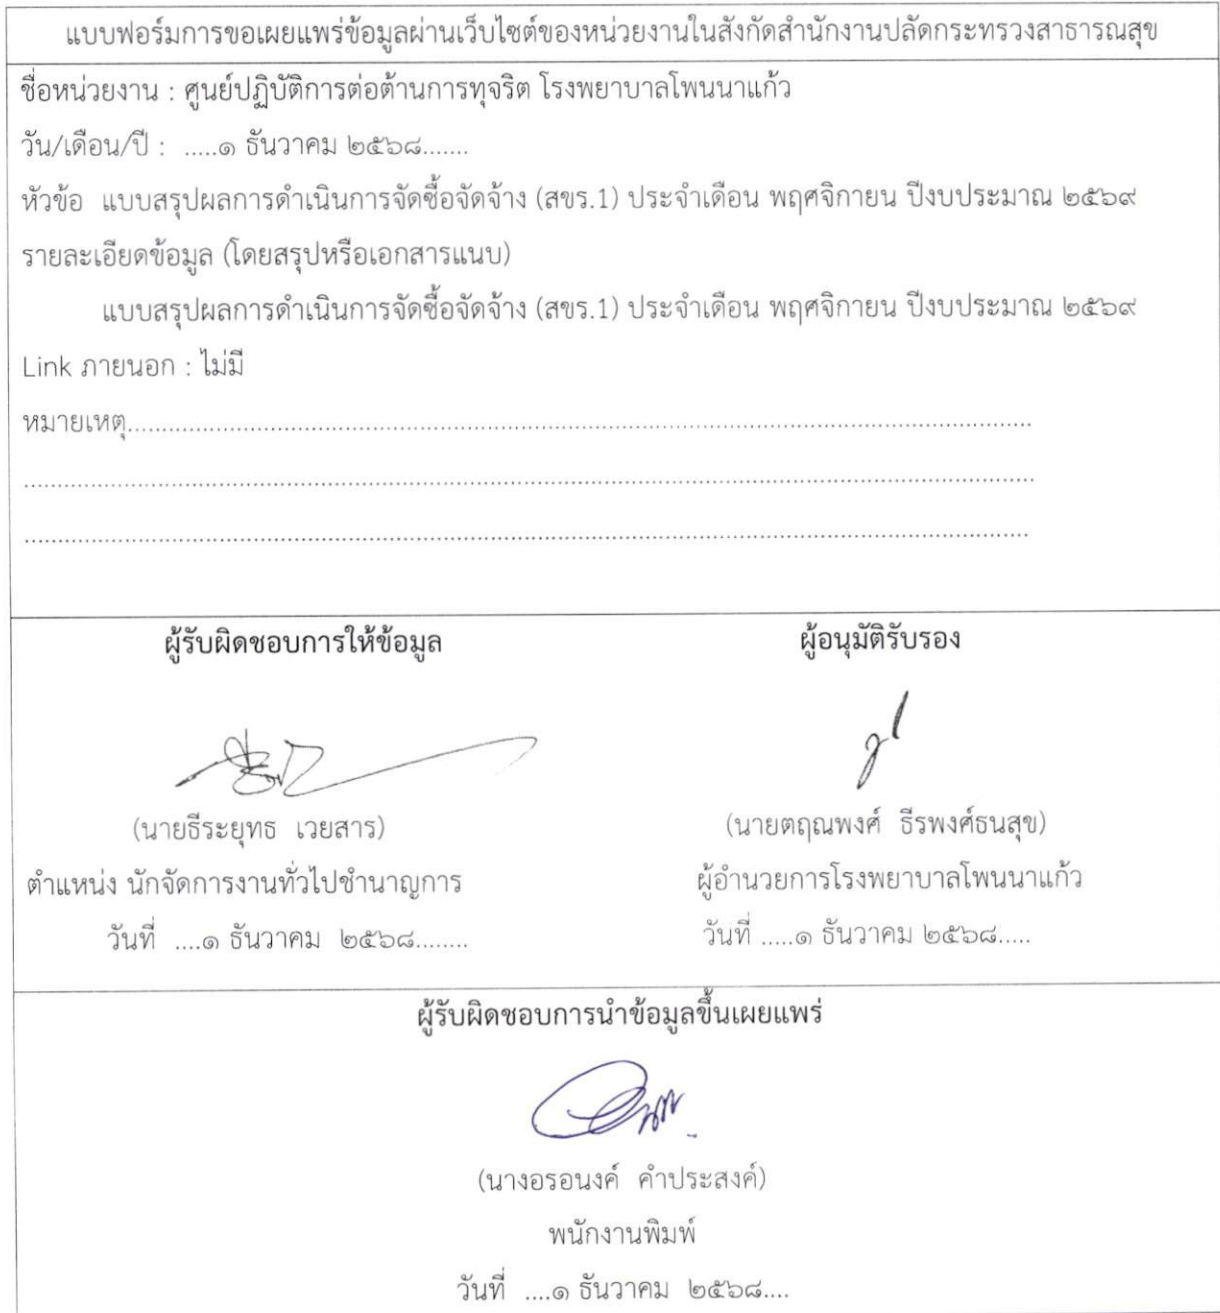 แบบฟอร์มการขอเผยแพร่ข้อมูลผ่านเว็บไซต์ของหน่วยงานในสังกัดสำนักงานปลัดกระทรวงสาธารณสุข
ชื่อหน่วยงาน : ศูนย์ปฏิบัติการต่อต้านการทุจริต โรงพยาบาลโพนนาแก้ว
วัน/เดือน/ปี : .....๑ ธันวาคม ๒๕๖๘.......
หัวข้อ แบบสรุปผลการดำเนินการจัดซื้อจัดจ้าง (สขร.1) ประจำเดือน พฤศจิกายน ปีงบประมาณ ๒๕๖๙
รายละเอียดข้อมูล (โดยสรุปหรือเอกสารแนบ)
แบบสรุปผลการดำเนินการจัดซื้อจัดจ้าง (สขร.1) ประจำเดือน พฤศจิกายน ปีงบประมาณ ๒๕๖๙
Link ภายนอก : ไม่มี
หมายเหตุ....................................................................................................................................
....................................................................................................................................................
....................................................................................................................................................
ผู้รับผิดชอบการให้ข้อมูล ผู้อนุมัติรับรอง
(นายธีระยุทธ เวยสาร) (นายตฤณพงศ์ ธีรพงศ์ธนสุข)
ตำแหน่ง นักจัดการงานทั่วไปชำนาญการ ผู้อำนวยการโรงพยาบาลโพนนาแก้ว
วันที่ ....๑ ธันวาคม ๒๕๖๘........ วันที่ .....๑ ธันวาคม ๒๕๖๘.....
ผู้รับผิดชอบการนำข้อมูลขึ้นเผยแพร่
(นางอรอนงค์ คำประสงค์)
พนักงานพิมพ์
วันที่ ....๑ ธันวาคม ๒๕๖๘....